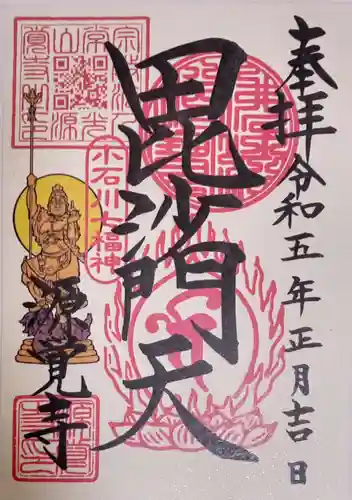 奉拝 令和五年正月吉日
毘沙門天
小石川七福神
源覚寺